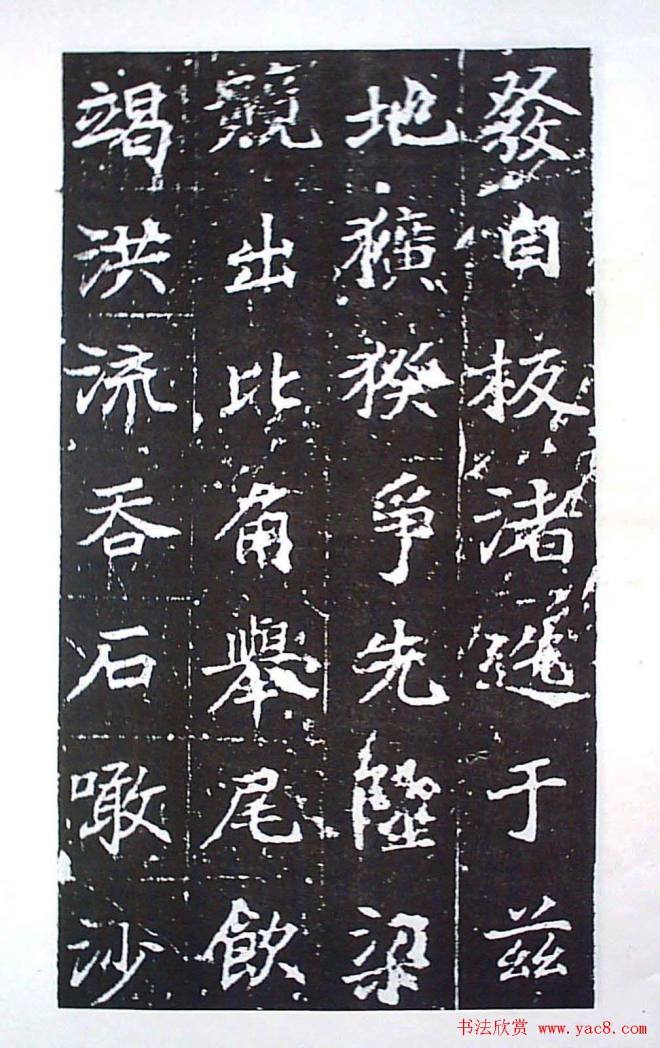 發自板渚遶于茲
地獷猴爭先陸梁
競出比角舉尾飲
竭洪流吞石噉沙
书法欣赏 www.yac8.com